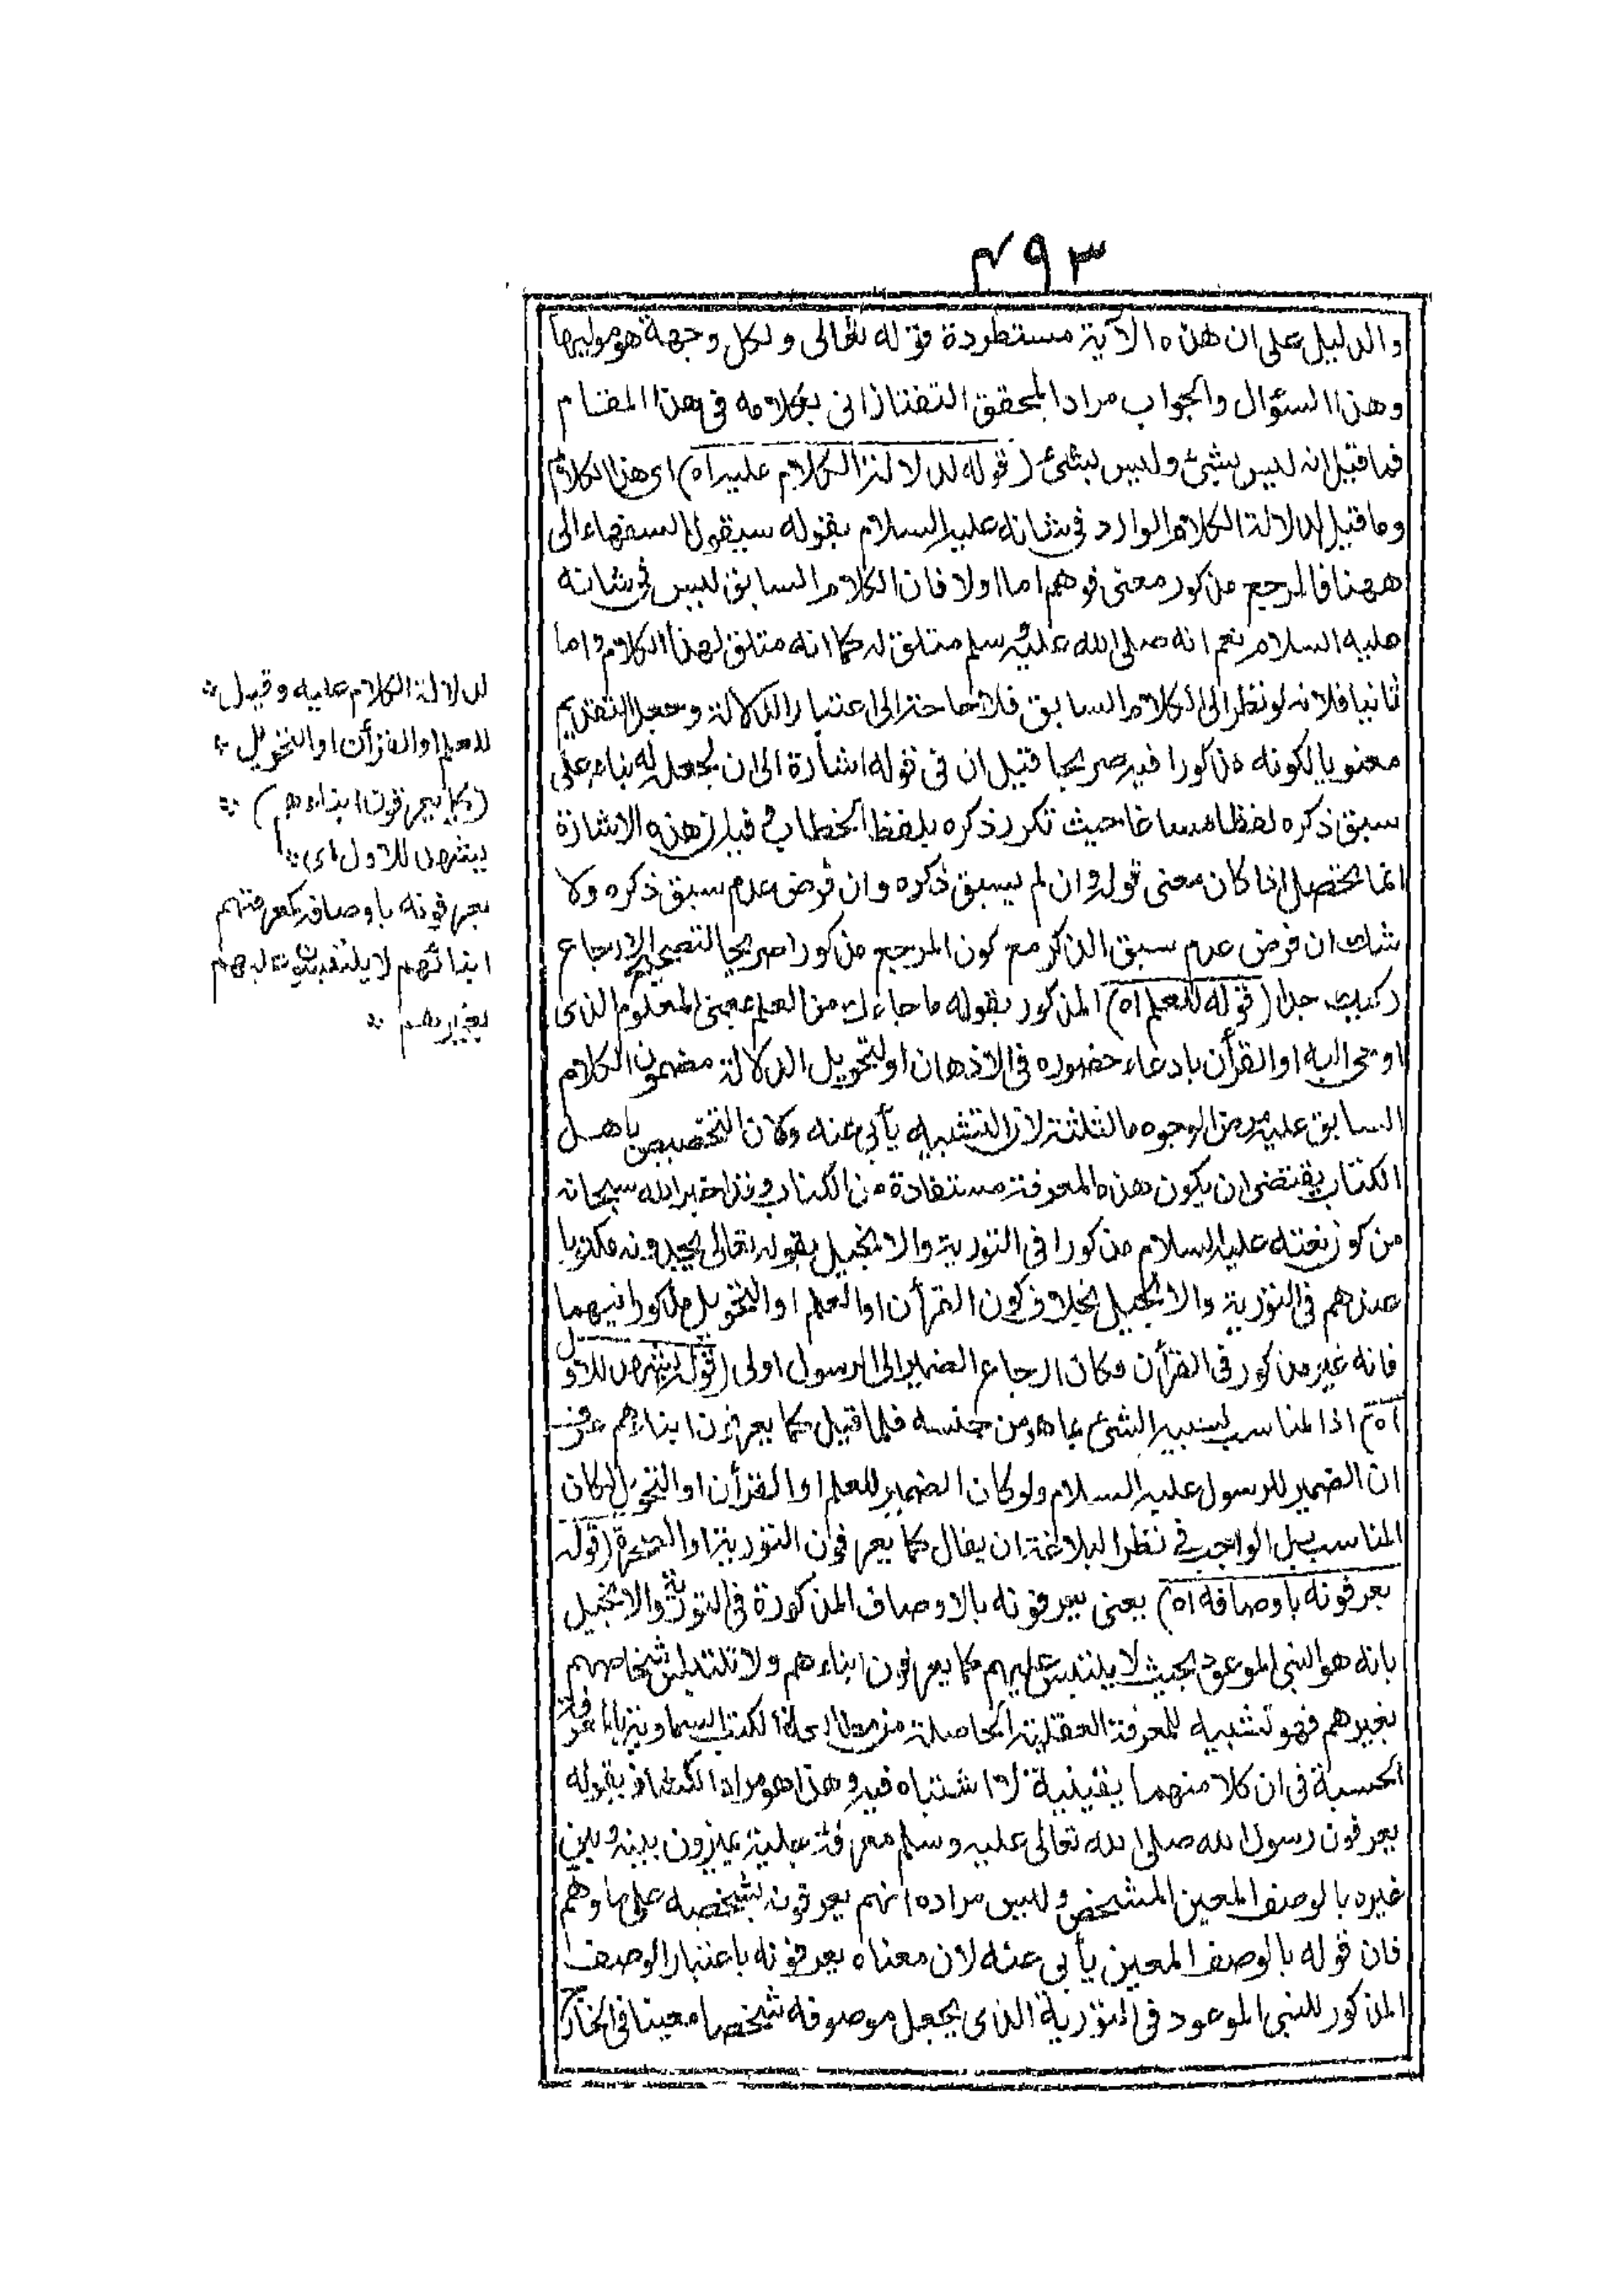 ٤٩٣
والدليل على ان هذه الآية مستطردة قوله تعالى ولكل وجهة هو موليها
وهذا السؤال والجواب مراد المحقق التفتازانى بكلامه فى هذا المقام
فما قيل انه ليس بشئ وليس بشئ (قوله لدلالة الكلام عليه اه) اى هذا الكلام
وما قيل لدلالة الكلام الوارد فى شانه عليه السلام بقوله سيقول السفهاء الى
ههنا فالمرجع مذكور معنى فوهم اما اولا فان الكلام السابق ليس فى شانه
عليه السلام نعم انه صلى الله عليه وسلم متلق له كما انه متلق لهذا الكلام واما
ثانيا فلانه لو نظر الى الكلام السابق فلا حاجة الى اعتبار الدلالة وجعل التقديم
معنويا لكونه مذكورا فيه صريحا قيل ان فى قوله اشارة الى ان يجعل له بناء على
سبق ذكره لفظا مساغا حيث تكرر ذكره بلفظ الخطاب فيه ان هذه الاشارة
انما تحصل اذا كان معنى قوله وان لم يسبق ذكره وان فرض عدم سبق ذكره ولا
شك ان فرض عدم سبق الذكر مع كون المرجع مذكورا صريحا لتصحيح الارجاع
ركيك جدا (قوله للعلم اه) المذكور بقوله ما جاءك من العلم بمعنى المعلوم الذى
اوحى اليه او القرأن بادعاء حضوره فى الاذهان او لتحويل الدلالة مضمون الكلام
السابق عليه الوجوه الثلثة لان التشبيه يأبى عنه وكان التخصيص باهل
الكتاب يقتضى ان يكون هذه المعرفة مستفادة من الكتاب وقد اخبر الله سبحانه
من كون نعته عليه السلام مذكورا فى التورية والانجيل بقوله تعالى يجدونه مكتوبا
عندهم فى التورية والانجيل بخلاف كون القرأن او العلم او التحويل مذكورا فيهما
فانه غير مذكور فى القرأن وكان ارجاع الضمير الى الرسول اولى (قوله يشهد للاول
اه) اذ المناسب تشبيه الشئ بما هو من جنسه فلما قيل كما يعرفون ابناءهم عرف
ان الضمير للرسول عليه السلام ولو كان الضمير للعلم او القرأن او التحويل لكان
المناسب بل الواجب فى نظر البلاغة ان يقال كما يعرفون التورية او الصخرة (قوله
يعرفونه باوصافه اه) يعنى يعرفونه بالاوصاف المذكورة فى التورية والانجيل
بانه هو النبى الموعود بحيث لا يلتبس عليهم كما يعرفون ابناءهم ولا تلتبس اشخاصهم
بغيرهم فهو تشبيه للمعرفة العقلية الحاصلة من مطالعة الكتب السماوية بالمعرفة
الحسية فى ان كلا منهما يقينية لا اشتباه فيه وهذا هو مراد الكشاف بقوله
يعرفون رسول الله صلى الله تعالى عليه وسلم معرفة جلية يميزون بينه وبين
غيره بالوصف المعين المشخص وليس مراده انهم يعرفونه بشخصه على ما وهم
فان قوله بالوصف المعين يأبى عنه لان معناه يعرفونه باعتبار الوصف
المذكور للنبى الموعود فى التورية الذى يجعل موصوفه شخصا معينا فى الخارج
لدلالة الكلام عليه وقيل
للعلم او القرأن او التحويل
(كما يعرفون ابناءهم)
يشهد للاول اى
يعرفونه باوصافه كمعرفتهم
ابنائهم لا يلتبسون عليهم
بغيرهم